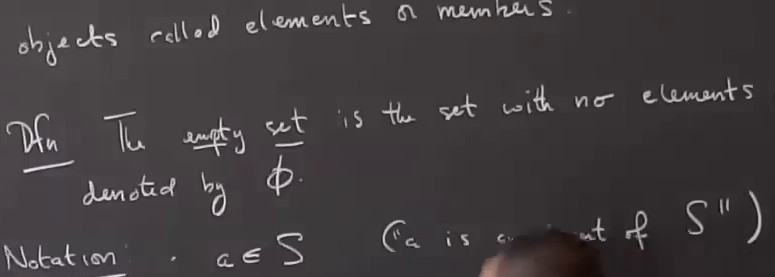 objects called elements or members.
Dfn The empty set is the set with no elements
denoted by ϕ.
Notation: · a ∈ S ("a is of S")